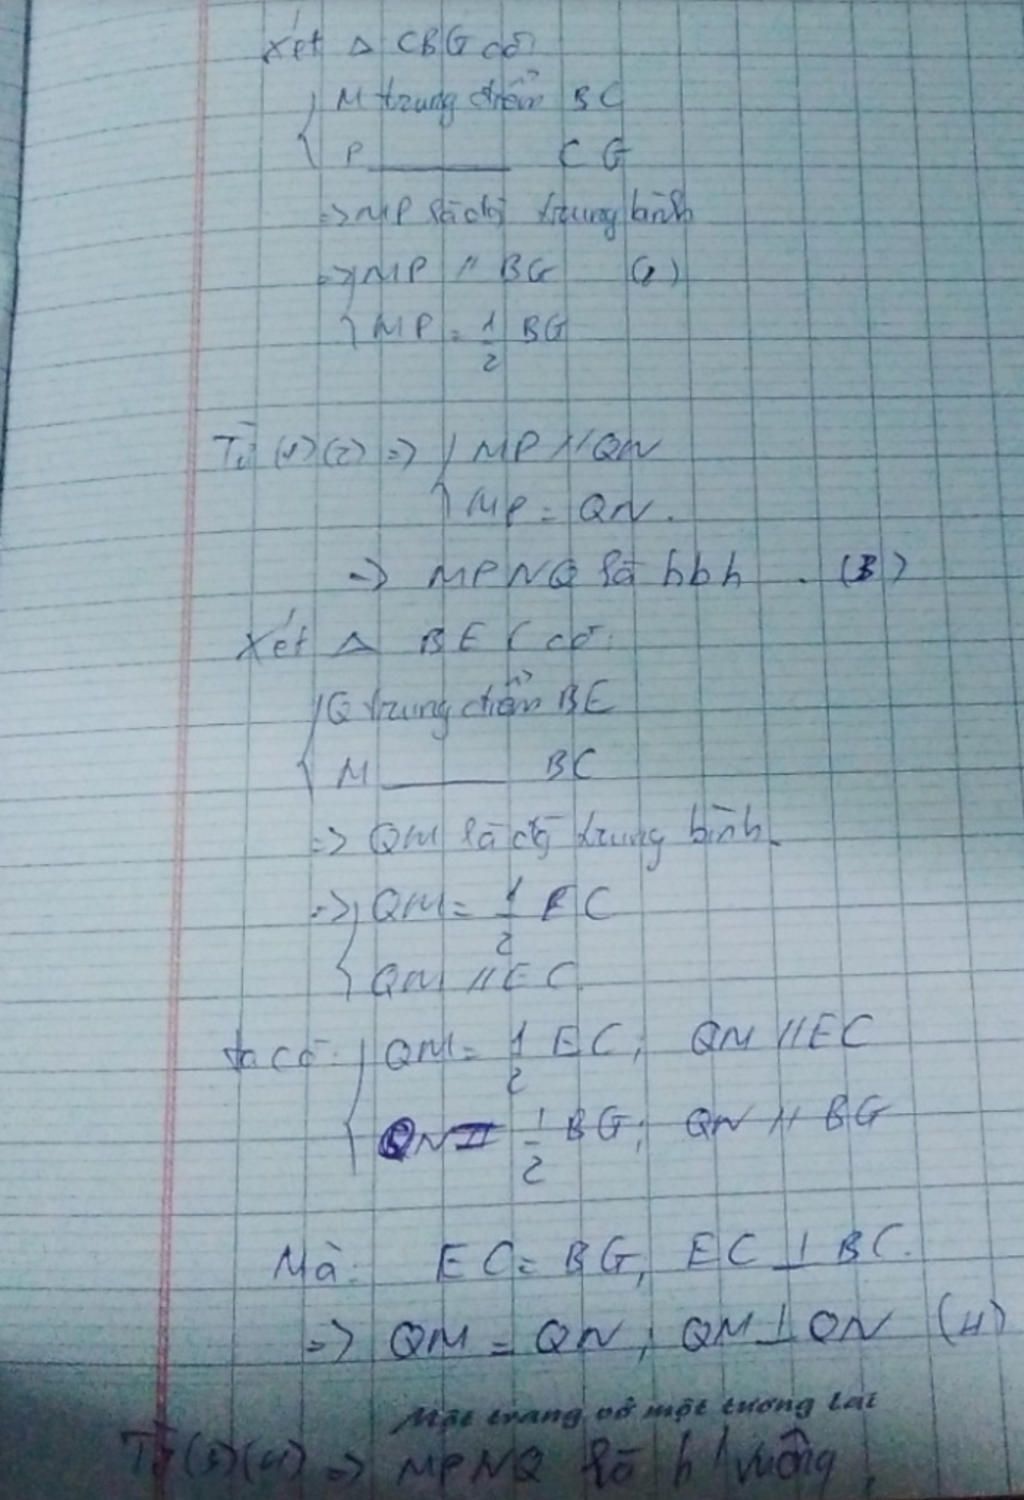 Xét Δ CBG có
{ M trung điểm BC
P ______ CG
=> MP là đg trung bình
=> { MP // BG (2)
MP = 1/2 BG
Từ (1)(2) => { MP // QN
MP = QN.
=> MPNQ là hbh. (3)
Xét Δ BEC có:
{ Q trung điểm BE
M ______ BC
=> QM là đg trung bình.
=> { QM = 1/2 EC
QM // EC
ta có: { QM = 1/2 EC; QM // EC
QN = 1/2 BG; QN // BG
Mà: EC = BG, EC ⊥ BC.
=> QM = QN; QM ⊥ QN (4)
Một trang vở một tương lai
Từ (3)(4) => MPNQ là h vuông.